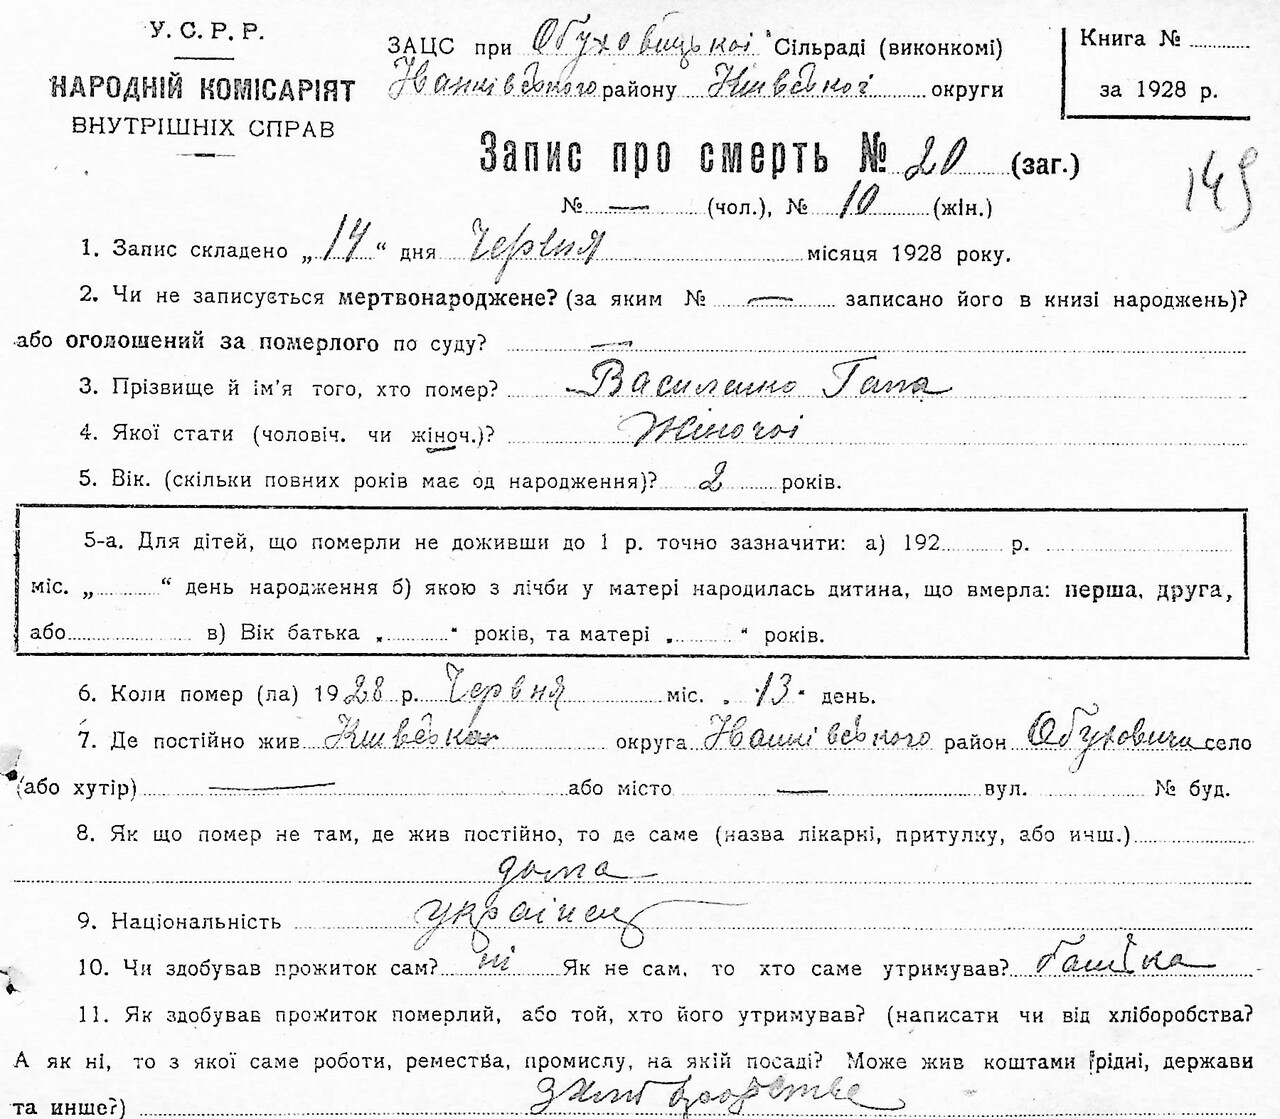 У. С. Р. Р.
НАРОДНІЙ КОМІСАРІЯТ
ВНУТРІШНІХ СПРАВ
ЗАЦС при Обуховицької Сільраді (виконкомі)
Іванківського району Київської округи
Книга №
за 1928 р.
Запис про смерть № 20 (заг.)
№ — (чол.), № 10 (жін.)
149
1. Запис складено „14“ дня Червня місяця 1928 року.
2. Чи не записується мертвонароджене? (за яким № — записано його в книзі народжень)?
або оголошений за померлого по суду? —
3. Прізвище й ім'я того, хто помер? Василенко Гапа
4. Якої стати (чоловіч. чи жіноч.)? Жіночої
5. Вік. (скільки повних років має од народження)? 2 років.
5-а. Для дітей, що померли не доживши до 1 р. точно зазначити: а) 192 р.
міс. „ “ день народження б) якою з лічби у матері народилась дитина, що вмерла: перша, друга,
або в) Вік батька „ “ років, та матері „ “ років.
6. Коли помер (ла) 1928 р. Червня міс. „13“ день.
7. Де постійно жив Київська округа Іванківського район Обуховичи село
(або хутір) — або місто — вул. № буд.
8. Як що помер не там, де жив постійно, то де саме (назва лікарні, притулку, або инш.)
дома
9. Національність українец
10. Чи здобував прожиток сам? ні Як не сам, то хто саме утримував? батька
11. Як здобував прожиток померлий, або той, хто його утримував? (написати чи від хліборобства?
А як ні, то з якої саме роботи, ремества, промислу, на якій посаді? Може жив коштами рідні, держави
та инше?) з хліборобства